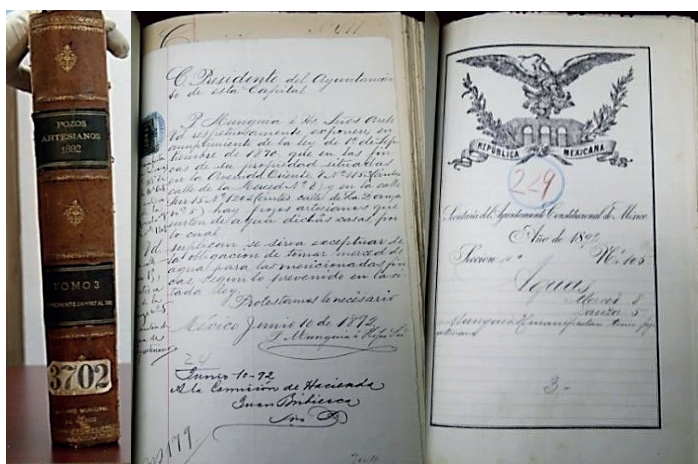 POZOS
ARTESIANOS
1892
TOMO 3
3702
C. Presidente del Ayuntamien
to de esta Capital
P. Munguia é Hs. Sucs ante
Vd. respetuosamente exponen, en
cumplimiento de la ley de 1º de Sep
tiembre de 1890, que en las fin
cas de su propiedad situadas
en la Avenida Oriente
calle de la Merced Nº 8) y en la calle
hay pozos artesianos que
surten de agua dichas casas por
lo cual
suplican se sirva exceptuar de
la obligacion de tomar merced de
agua para las mencionadas fin
cas segun lo prevenido en la ci
tada ley.
Protestamos lo necesario
México Junio 10 de 1892
P. Munguia é Hijos
24
Junio 10-92
A la Comision de Hacienda
Juan Bribiesca
Srio
REPÚBLICA MEXICANA
229
Secretaría del Ayuntamiento Constitucional de México
Año de 1892
Sección Nº 105
Aguas
Merced 8
Danza 5
Munguia é H manifiestan tener pozo
artesiano
3-